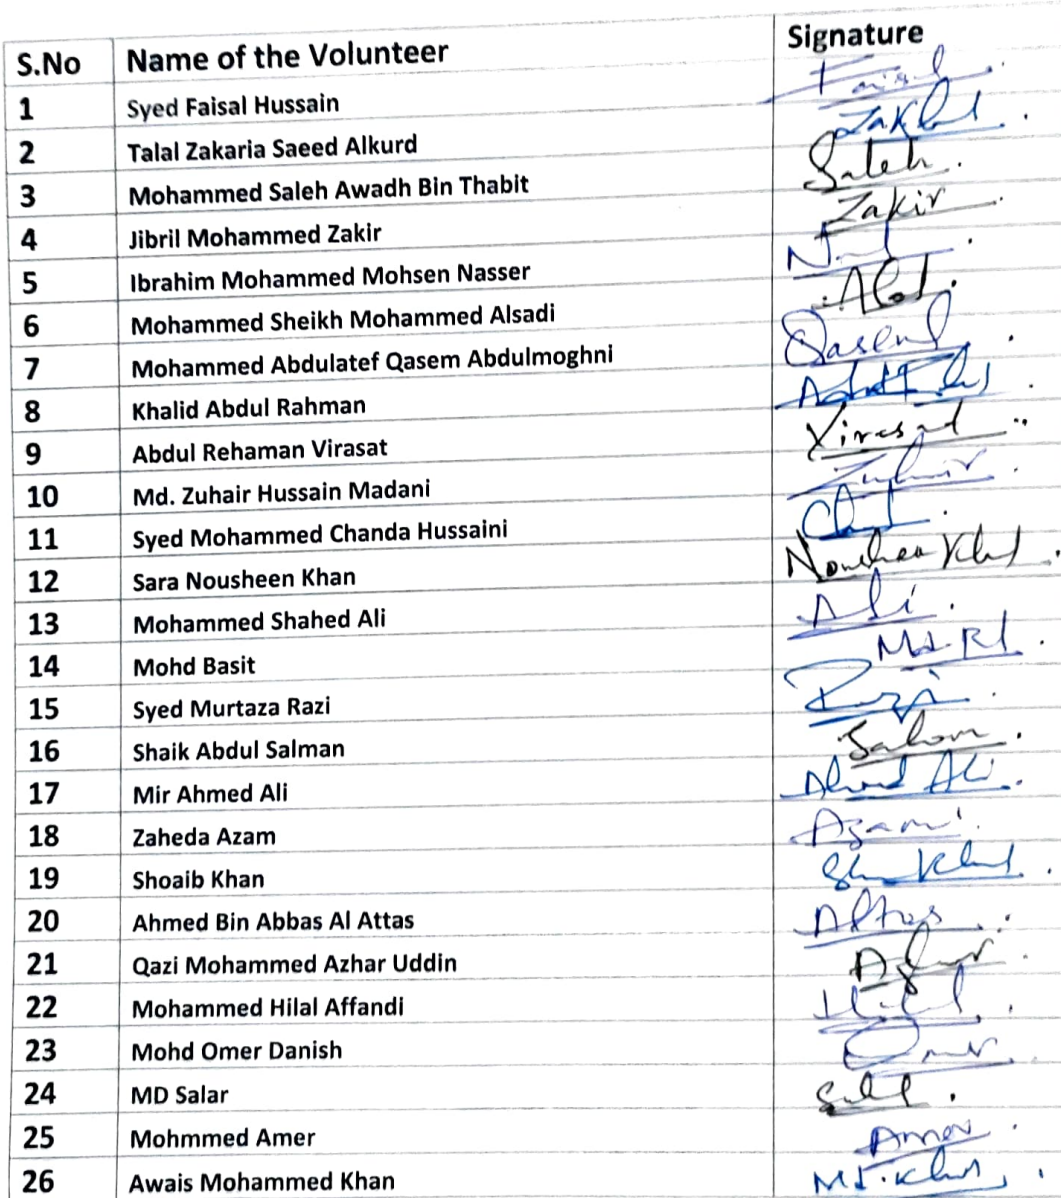 S.No Name of the Volunteer Signature
1 Syed Faisal Hussain Faisal
2 Talal Zakaria Saeed Alkurd
3 Mohammed Saleh Awadh Bin Thabit Saleh
4 Jibril Mohammed Zakir Zakir
5 Ibrahim Mohammed Mohsen Nasser
6 Mohammed Sheikh Mohammed Alsadi
7 Mohammed Abdulatef Qasem Abdulmoghni Qasem
8 Khalid Abdul Rahman
9 Abdul Rehaman Virasat Virasat
10 Md. Zuhair Hussain Madani Zuhair
11 Syed Mohammed Chanda Hussaini
12 Sara Nousheen Khan Nousheen Khan
13 Mohammed Shahed Ali Ali
14 Mohd Basit
15 Syed Murtaza Razi Razi
16 Shaik Abdul Salman
17 Mir Ahmed Ali Ahmed Ali
18 Zaheda Azam
19 Shoaib Khan
20 Ahmed Bin Abbas Al Attas Attas
21 Qazi Mohammed Azhar Uddin
22 Mohammed Hilal Affandi Hilal
23 Mohd Omer Danish Omer
24 MD Salar
25 Mohmmed Amer Amer
26 Awais Mohammed Khan Md. Khan